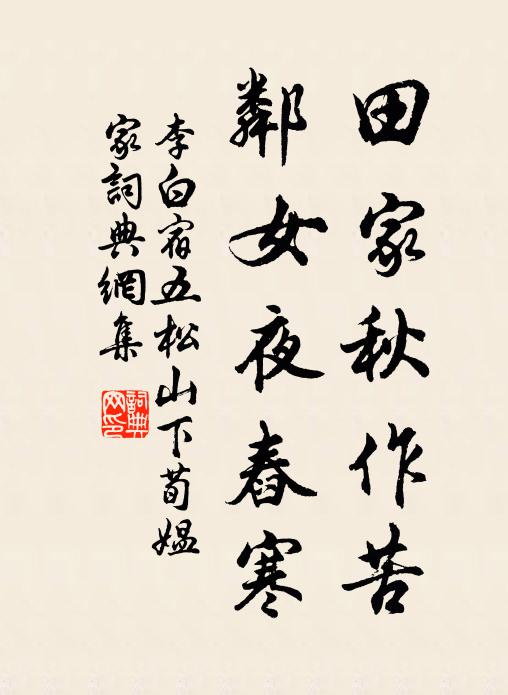 田家秋作苦
鄰女夜舂寒
李白宿五松山下荀媼
家詞典網集
詞典
网印